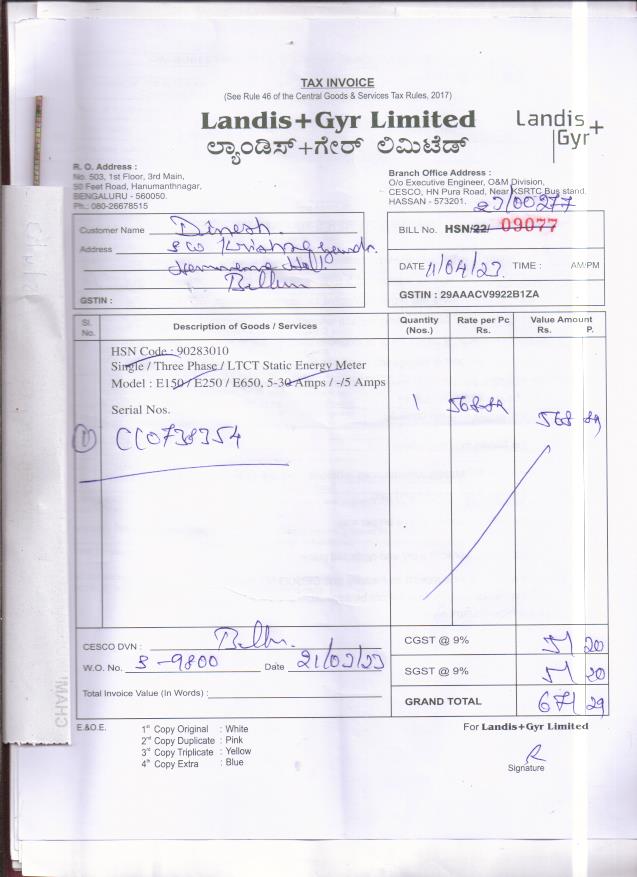 TAX INVOICE
(See Rule 46 of the Central Goods & Services Tax Rules, 2017)
Landis+Gyr Limited
ಲ್ಯಾಂಡಿಸ್+ಗೇರ್ ಲಿಮಿಟೆಡ್
Landis+
Gyr
R. O. Address :
No. 503, 1st Floor, 3rd Main,
50 Feet Road, Hanumanthnagar,
BENGALURU - 560050.
Ph.: 080-26678515
Branch Office Address :
O/o Executive Engineer, O&M Division,
CESCO, HN Pura Road, Near KSRTC Bus stand.
HASSAN - 573201.
23/00277
Customer Name Dinesh.
Address S/o
GSTIN :
BILL No. HSN/22/ 09077
DATE 11/04/23. TIME : AM/PM
GSTIN : 29AAACV9922B1ZA
Sl. No. Description of Goods / Services Quantity (Nos.) Rate per Pc Rs. Value Amount Rs. P.
HSN Code : 90283010
Single / Three Phase / LTCT Static Energy Meter
Model : E150 / E250 / E650, 5-30 Amps / -/5 Amps
Serial Nos. 1 568-89 568 89
1 CC0738354
CESCO DVN :
W.O. No. 3-9800 Date 21/03/23
Total Invoice Value (In Words) :
CGST @ 9% 51 20
SGST @ 9% 51 20
GRAND TOTAL 671 29
E.&O.E.
1st Copy Original : White
2nd Copy Duplicate : Pink
3rd Copy Triplicate : Yellow
4th Copy Extra : Blue
For Landis+Gyr Limited
Signature